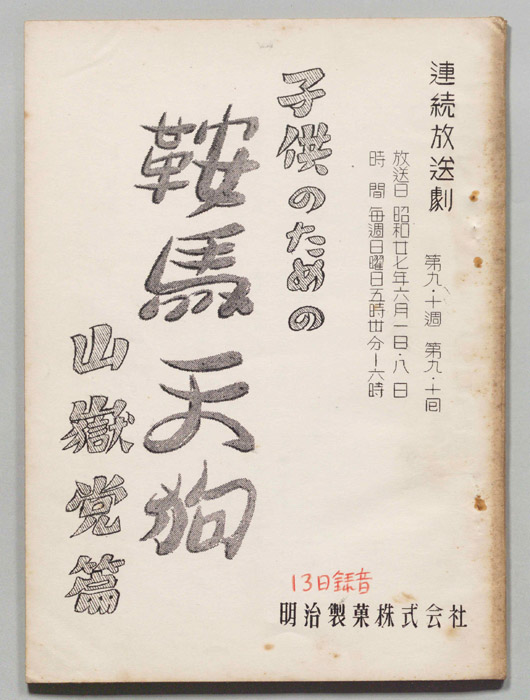 連続放送劇
第九・十週 第九・十回
放送日 昭和廿七年六月一日・八日
時間 毎週日曜日五時卅分ー六時
子供のための
鞍馬天狗
山嶽党篇
13日録音
明治製菓株式会社